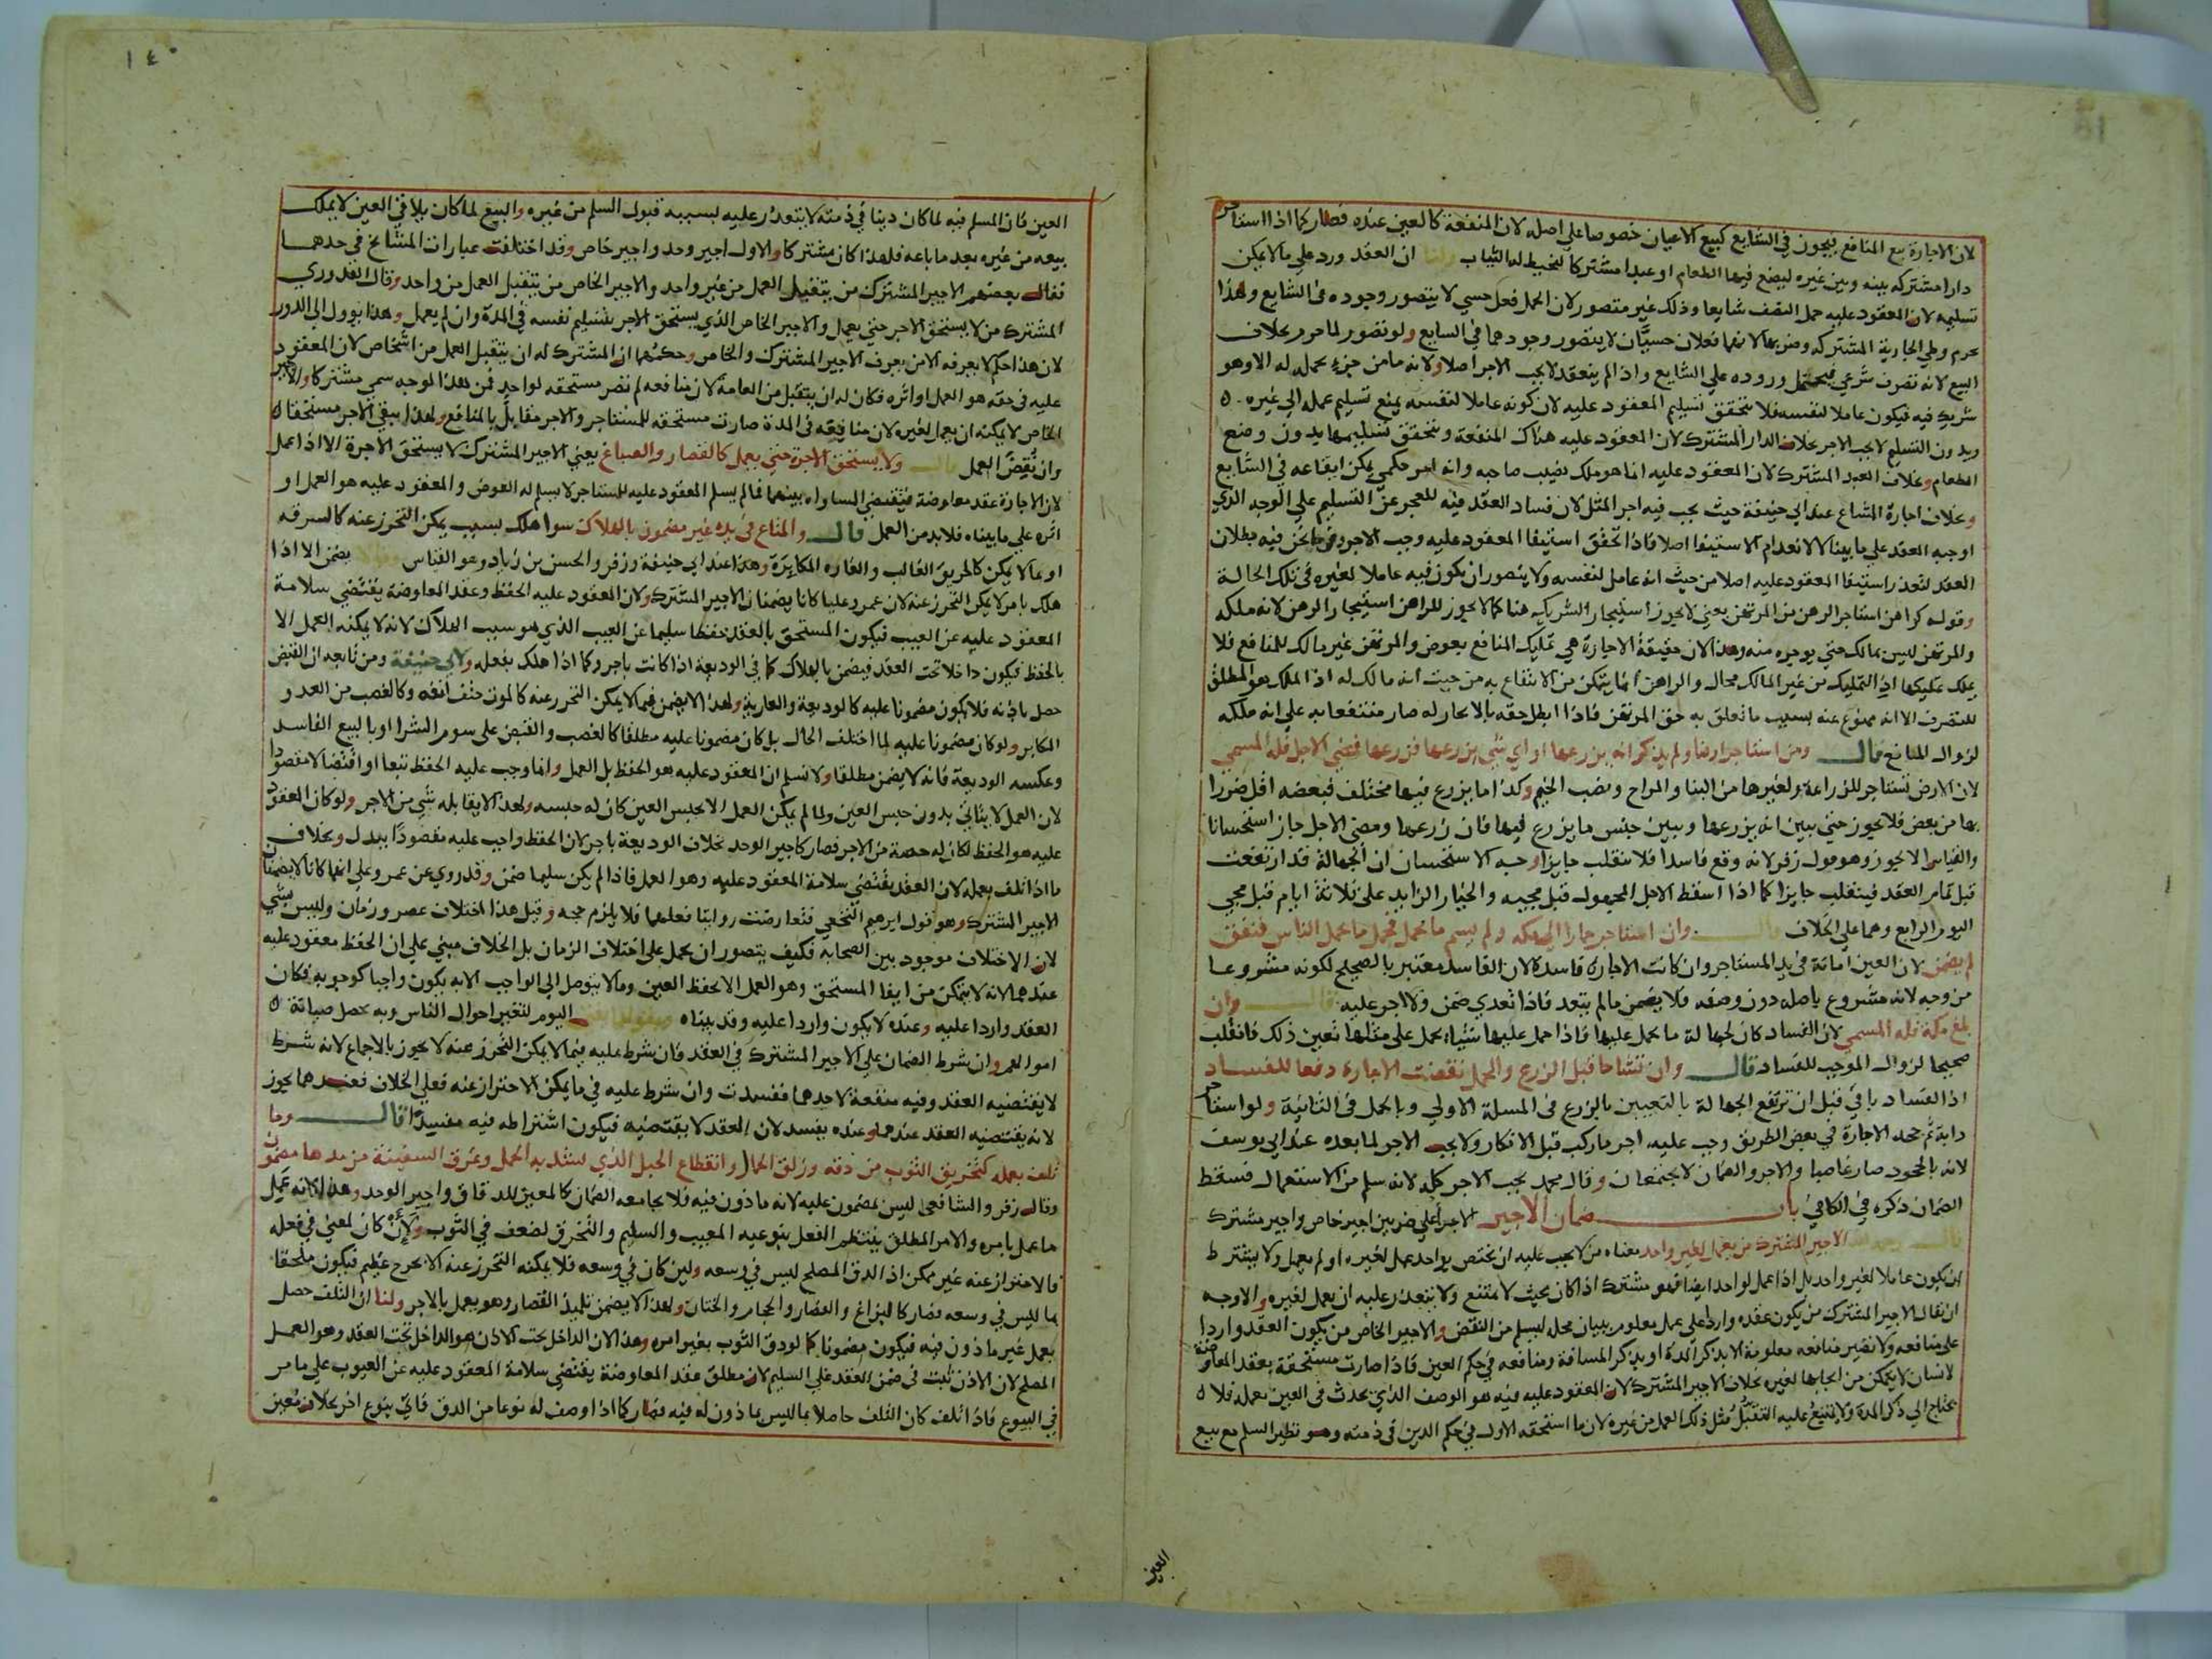 لان الاجارة بيع المنافع فيجوز في الشايع كبيع الاعيان خصوصا علي اصله لان المنفعة كالعين عنده فصار كما اذا استاجر
دارا مشتركه بينه وبين غيره ليضع فيها الطعام او عبدا مشتركا ليخيط له الثياب ولنا ان العقد ورد علي ما لا يمكن
تسليمه لان المعقود عليه حمل النصف شايعا وذلك غير متصور لان الحمل فعل حسي لا يتصور وجوده في الشايع ولهذا
يحرم وطي الجارية المشتركه وضربها لانهما فعلان حسيان لا يتصور وجودهما في الشايع ولو تصور لما حرم بخلاف
البيع لانه تصرف شرعي فيحتمل وروده علي الشايع واذا لم ينعقد لا يجب الاجر اصلا ولانه ما من جزء يحمله له الا وهو
شريك فيه فيكون عاملا لنفسه فلا يتحقق تسليم المعقود عليه لان كونه عاملا لنفسه يمنع تسليم عمله الي غيره
وبدون التسليم لا يجب الاجر بخلاف الدار المشترك لان المعقود عليه هناك المنفعة ويتحقق تسليمها بدون وضع
الطعام وبخلاف العبد المشترك لان المعقود عليه انما هو ملك نصيب صاحبه وانه امر حكمي يمكن ايقاعه في الشايع
وبخلاف اجارة المشاع عند ابي حنيفة حيث يجب فيه اجر المثل لان فساد العقد فيه للعجز عن التسليم علي الوجه الذي
اوجبه العقد علي ما بينا لا لانعدام الاستيفا اصلا فاذا تحقق استيفا المعقود عليه وجب الاجر وفي ما نحن فيه بطلان
العقد لتعذر استيفا المعقود عليه اصلا من حيث انه عامل لنفسه ولا يتصور ان يكون فيه عاملا لغيره في تلك الحالة
وقوله كراهن استاجر الرهن من المرتهن يعني لا يجوز استيجار الشريك هنا كما لا يجوز للراهن استيجار الرهن لانه ملكه
والمرتهن ليس بمالك حتي يوجره منه وهذا لان حقيقة الاجارة هي تمليك المنافع بعوض والمرتهن غير مالك للمنافع فلا
يملك تمليكها اذ التمليك من غير المالك محال والراهن انما يتمكن من الانتفاع به من حيث انه مالك له اذ الملك هو المطلق
للتصرف الا انه ممنوع عنه بسبب ما تعلق به حق المرتهن فاذا ابطل حقه بالايجار له صار منتفعا به علي انه ملكه
لزوال المانع قال ومن استاجر ارضا ولم يذكر انه يزرعها او اي شي يزرعها فزرعها فمضي الاجل فله المسمي
لان الارض تستاجر للزراعة ولغيرها من البنا والمراح ونصب الخيم وكذا ما يزرع فيها مختلف فبعضه اقل ضررا
بها من بعض فلا يجوز حتي يبين انه يزرعها ويبين جنس ما يزرع فيها فان زرعها ومضي الاجل جاز استحسانا
والقياس ان لا يجوز وهو قول زفر لانه وقع فاسدا فلا ينقلب جايزا وجه الاستحسان ان الجهالة قد ارتفعت
قبل تمام العقد فينقلب جايزا كما اذا اسقط الاجل المجهول قبل مجيه والخيار الزايد علي ثلاثة ايام قبل مجي
اليوم الرابع وهما علي الخلاف قال وان استاجر حمارا الي مكه ولم يسم ما يحمل فحمل ما يحمل الناس فنفق
لم يضمن لان العين امانة في يد المستاجر وان كانت الاجارة فاسدة لان الفاسد معتبر بالصحيح لكونه مشروعا
من وجه لانه مشروع باصله دون وصفه فلا يضمن ما لم يتعد فاذا تعدي ضمن ولا اجر عليه قال وان
بلغ مكه فله المسمي لان الفساد كان لجهالة ما يحمل عليها فاذا حمل عليها شيئا يحمل علي مثلها تعين ذلك فانقلب
صحيحا لزوال الموجب للفساد قال وان تشاحا قبل الزرع والحمل نقضت الاجارة دفعا للفساد
اذ الفساد باق قبل ان ترتفع الجهالة بالتعيين بالزرع في المسلة الاولي وبالحمل في الثانية ولو استاجر
دابة ثم جحد الاجارة في بعض الطريق وجب عليه اجر ما ركب قبل الانكار ولا يجب الاجر لما بعده عند ابي يوسف
لانه بالجحود صار غاصبا والاجر والضمان لا يجتمعان وقال محمد يجب الاجر كله لانه سلم من الاستعمال فسقط
الضمان ذكره في الكافي باب ضمان الاجير الاجرا علي ضربين اجير خاص واجير مشترك
قال رحمه الله الاجير المشترك من يعمل لغير واحد معناه من لا يجب عليه ان يختص بواحد عمل لغيره او لم يعمل ولا يشترط
ان يكون عاملا لغير واحد بل اذا عمل لواحد ايضا فهو مشترك اذا كان بحيث لا يمتنع ولا يتعذر عليه ان يعمل لغيره والاوجه
ان يقال الاجير المشترك من يكون عقده واردا علي عمل معلوم ببيان محله ليسلم من النقض والاجير الخاص من يكون العقد واردا
علي منافعه ولا تصير منافعه معلومة الا بذكر المدة او بذكر المسافة ومنافعه في حكم العين فاذا صارت مستحقة بعقد المعاوضة
لانسان لا يتمكن من ايجابها لغيره بخلاف الاجير المشترك لان المعقود عليه فيه هو الوصف الذي يحدث في العين بعمله فلا
يحتاج الي ذكر المدة ولا يمتنع عليه التقبل مثل ذلك العمل من غيره لان ما استحقه الاول في حكم الدين في ذمته وهو نظير السلم مع بيع
العين
١٤٠
العين فان المسلم فيه لما كان دينا في ذمته لا يتعذر عليه بسببه قبول السلم من غيره والبيع لما كان يلاقي العين لا يملك
بيعه من غيره بعد ما باعه فلهذا كان مشتركا والاول اجير وحد واجير خاص وقد اختلفت عبارات المشايخ في حدهما
فقال بعضهم الاجير المشترك من يتقبل العمل من غير واحد والاجير الخاص من يتقبل العمل من واحد وقال القدوري
المشترك من لا يستحق الاجر حتي يعمل والاجير الخاص الذي يستحق الاجر بتسليم نفسه في المدة وان لم يعمل وهذا يوول الي الدور
لان هذا حكم لا يعرفه الا من يعرف الاجير المشترك والخاص وحكمهما ان المشترك له ان يتقبل العمل من اشخاص لان المعقود
عليه في حقه هو العمل او اثره فكان له ان يتقبل من العامة لان منافعه لم تصر مستحقه لواحد فمن هذا الوجه سمي مشتركا والاجير
الخاص لا يمكنه ان يعمل لغيره لان منافعه في المدة صارت مستحقه للمستاجر والاجر مقابل بالمنافع ولهذا يبقي الاجر مستحقا
وان نقض العمل قال ولا يستحق الاجرة حتي يعمل كالقصار والصباغ يعني الاجير المشترك لا يستحق الاجرة الا اذا عمل
لان الاجارة عقد معاوضة فيقتضي المساواه بينهما فما لم يسلم المعقود عليه للمستاجر لا يسلم له العوض والمعقود عليه هو العمل او
اثره علي ما بيناه فلا بد من العمل قال والمتاع في يده غير مضمون بالهلاك سوا هلك بسبب يمكن التحرز عنه كالسرقه
او بما لا يمكن كالحريق الغالب والغارة المكابرة وهذا عند ابي حنيفة وزفر والحسن بن زياد وهو القياس وقالا يضمن الا اذا
هلك بامر لا يمكن التحرز عنه لان عمر وعليا كانا يضمنان الاجير المشترك ولان المعقود عليه الحفظ وعقد المعاوضة يقتضي سلامة
المعقود عليه عن العيب فيكون المستحق بالعقد حفظا سليما عن العيب الذي هو سبب الهلاك لانه لا يمكنه العمل الا
بالحفظ فيكون داخلا تحت العقد فيضمن بالهلاك كما في الوديعة اذا كانت باجر وكما اذا هلك بفعله ولابي حنيفة ومن تابعه ان القبض
حصل باذنه فلا يكون مضمونا عليه كالوديعة والعارية ولهذا لا يضمن فيما لا يمكن التحرز عنه كالموت حتف انفه وكالغصب من العدو
المكابر ولو كان مضمونا عليه لما اختلف الحال بل كان مضمونا عليه مطلقا كالغصب والقبض علي سوم الشرا او بالبيع الفاسد
وعكسه الوديعة فانه لا يضمن مطلقا ولا نسلم ان المعقود عليه هو الحفظ بل العمل وانما وجب عليه الحفظ تبعا او اقتضا لا مقصودا
لان العمل لا يتاتي بدون حبس العين ولما لم يمكن العمل الا بحبس العين كان له حبسه ولهذا لا يقابله شي من الاجر ولو كان المعقود
عليه هو الحفظ لكان له حصة من الاجر فصار كاجير الوحد بخلاف الوديعة باجر لان الحفظ واجب عليه مقصودا ببدل وبخلاف
ما اذا تلف بعمله لان العقد يقتضي سلامة المعقود عليه وهو العمل فاذا لم يكن سليما ضمن وقد روي عن عمر وعلي انهما كانا لا يضمنان
الاجير المشترك وهو قول ابرهيم النخعي فتعارضت روايتا فعلهما فلا يلزم حجه وقيل هذا اختلاف عصر وزمان وليس بشي
لان الاختلاف موجود بين الصحابة فكيف يتصور ان يحمل علي اختلاف الزمان بل الخلاف مبني علي ان الحفظ معقود عليه
عندهما لانه لا يتمكن من ايفا المستحق وهو العمل الا بحفظ العين وما لا يتوصل الي الواجب الا به يكون واجبا كوجوبه فكان
العقد واردا عليه وعنده لا يكون واردا عليه وقد بيناه وبقولهما يفتي اليوم لتغير احوال الناس وبه يحصل صيانة
اموالهم وان شرط الضمان علي الاجير المشترك في العقد فان شرط عليه فيما لا يمكن التحرز عنه لا يجوز بالاجماع لانه شرط
لا يقتضيه العقد وفيه منفعة لاحدهما ففسدت وان شرط عليه في ما يمكن الاحتراز عنه فعلي الخلاف فعندهما يجوز
لانه يقتضيه العقد عندهما وعنده يفسد لان العقد لا يقتضيه فيكون اشتراطه فيه مفسدا قال وما
تلف بعمله كتخريق الثوب من دقه وزلق الحمال وانقطاع الحبل الذي يشد به الحمل وغرق السفينة من مدها مضمون
وقال زفر والشافعي ليس بمضمون عليه لانه ماذون فيه فلا يجامعه الضمان كالمعين للدقاق واجير الوحد وهذا لانه عمل
ما عمل بامره والامر المطلق ينتظم الفعل بنوعيه المعيب والسليم والتخرق لضعف في الثوب ولئن كان لمعني في فعله
فالاحتراز عنه غير ممكن اذ الدق المصلح ليس في وسعه ولين كان في وسعه فلا يمكنه التحرز عنه الا بحرج عظيم فيكون ملحقا
بما ليس في وسعه فصار كالبزاغ والفصاد والحجام والختان ولهذا لا يضمن تلميذ القصار وهو يعمل بالاجر ولنا ان التلف حصل
بعمل غير ماذون فيه فيكون مضمونا كما لو دق الثوب بغير امره وهذا لان الداخل تحت الاذن هو الداخل تحت العقد وهو العمل
المصلح لان الاذن ثبت في ضمن العقد علي السليم لان مطلق عقد المعاوضة يقتضي سلامة المعقود عليه عن العيوب علي ما مر
في البيوع فاذا تلف كان التلف حاصلا بما ليس بماذون له فيه فصار كما اذا وصف له نوعا من الدق فاتي بنوع اخر بخلاف معين